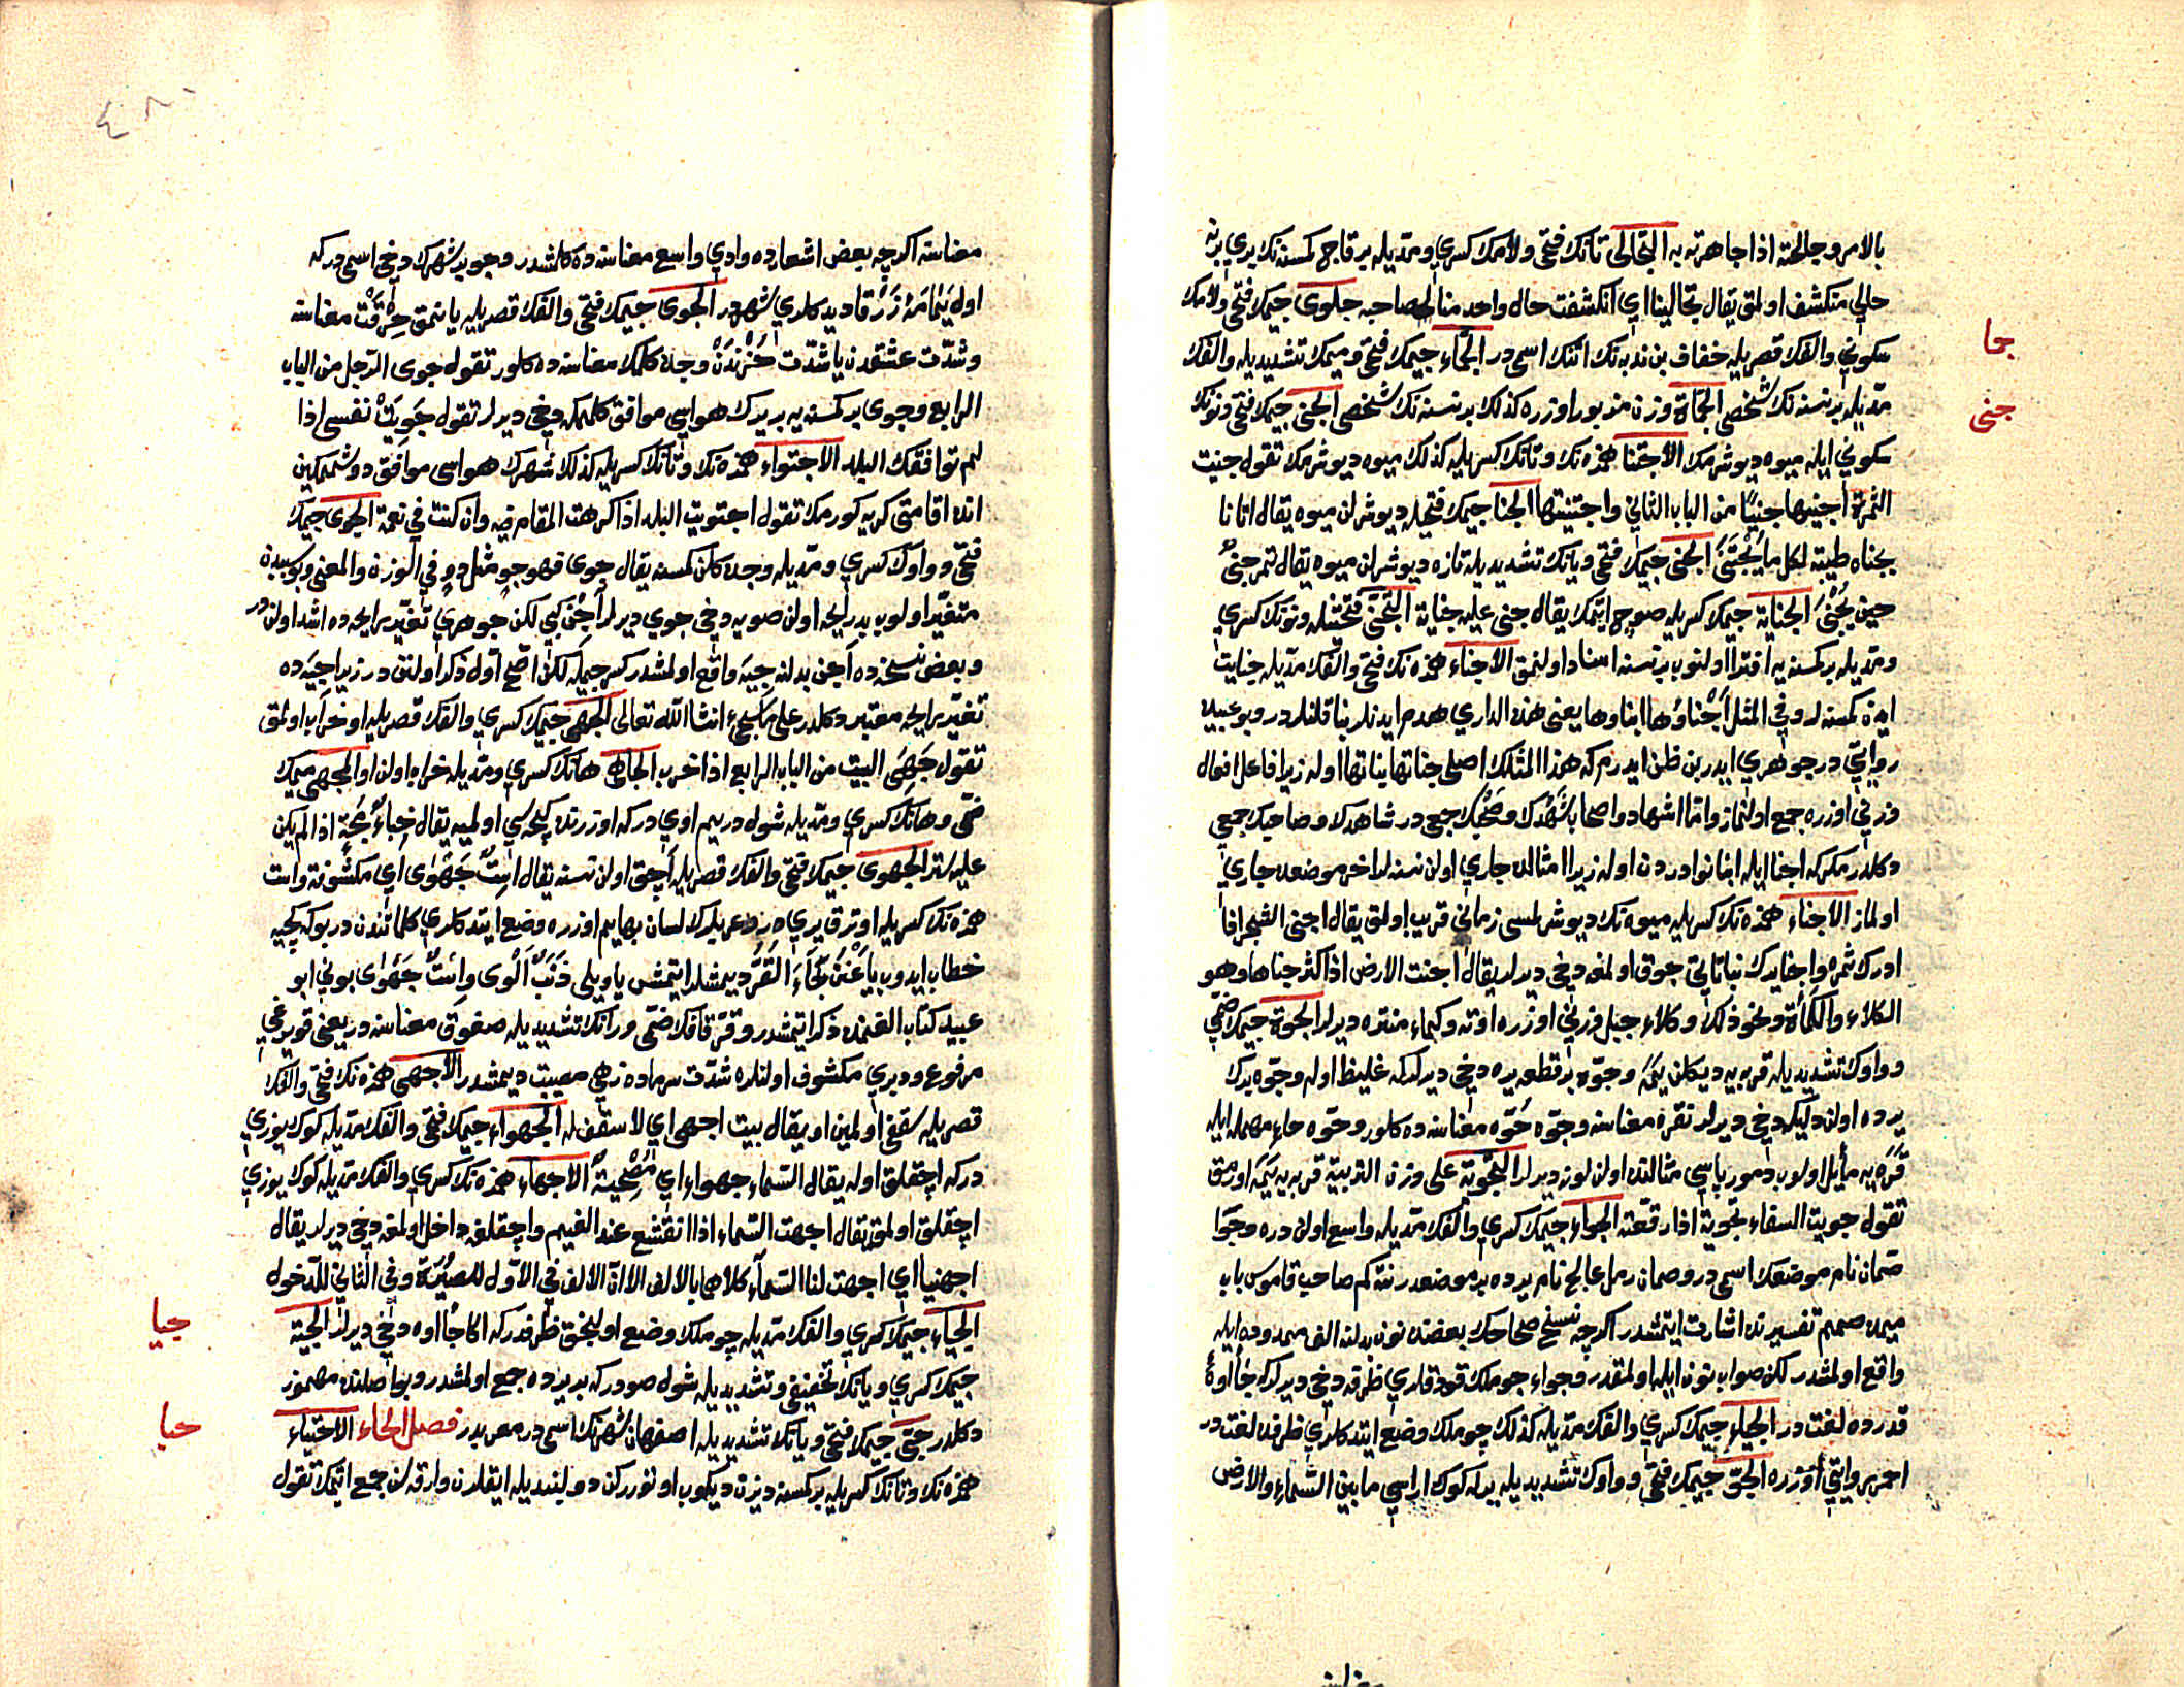 بالامر وجالحته اذا جاهرته به التجالى تانك فتحى ولامك كسرى ومديله بر قاچ كمسنه نك برى برينه
حالى منكشف اولمق يقال تجالينا اى انكشفت حال واحد منا لصاحبه جلوى جيمك فتحى ولامك
جما
سكونى والفك قصريله خفاف بن ندبه نك اتنك اسمى در الجماء جيمك فتحى وميمك تشديديله والفك
جنى
مديله بر نسنه نك شخصى الجماة وزن مزبور اوزره كذلك بر نسنه نك شخصى الجنى جيمك فتحى ونونك
سكونى ايله ميوه ديوشرمك الاجتنا همزه نك وتانك كسريله كذلك ميوه ديوشرمك تقول جنيت
الثمرة اجنيها جنيا من الباب الثانى واجتنيتها الجنا جيمك فتحيله ديوشرلن ميوه يقال اتانا
بجناه طيبة لكل ما يجتنى الجنى جيمك فتحى ويانك تشديديله تازه ديوشرلن ميوه يقال ثمر جنى
حين يجنى الجناية جيمك كسريله صوچ ايتمك يقال جنى عليه جناية التجنى فتحتيله ونونك كسرى
ومديله بر كمسنه يه افترا اولنوب بر نسنه اسناد اولنمق الاجناء همزه نك فتحى والفك مديله جنايت
ايدن كمسنه لر وفى المثل اجناؤها ابناؤها يعنى هذه الدارى هدم ايدنلر بنا قلنلردر وبو عبيده
روايتى در جوهرى ايدر بن ظن ايدرم كه هذا المثلك اصلى جناتها بناتها اوله زيرا فاعل افعال
وزنى اوزره جمع اولنماز واما اشهاد واصحاب شهدك وصحبك جمعى در شاهدك وصاحبك جمعى
دكلدر مكر كه اجنا ايله ابنا نوادردن اوله زيرا امثالده جارى اولن نسنه لر اخر موضعده جارى
اولماز الاجناء همزه نك كسريله ميوه نك ديوشرلمسى زمانى قريب اولمق يقال اجنى الشجر اذا
ادرك ثمره واجنا يرك نباتاتى چوق اولمغه دخى ديرلر يقال اجنت الارض اذا كثر جناها وهو
الكلاء والكمأة ونحو ذلك وكلاء جبل وزنى اوزره اوته وكماء منتره ديرلر الجوة جيمك ضمى
وواوك تشديديله قربه يه ديكلن يمه وجوه بر قطعه يره دخى ديرلر كه غليظ اوله وجوه يرك
يرده اولن دليكه دخى ديرلر نقره معناسنه وجوه حوه معناسنه ده كلور وحوه حاء مهمله ايله
قره يه مايل اولوب دمور پاسى مثالنده اولن لونه ديرلر التجوية على وزن التربية قربه يه يمه اورمق
تقول جويت السقاء تجوية اذا رقعته الجواء جيمك كسرى والفك مديله واسع اولن دره وجوا
صمان نام موضعك اسمى در وصمان رمل عالج نام يرده بر موضعدر نته كم صاحب قاموس باب
ميمده صمم تفسيرنده اشارت ايتمشدر اكرچه نسخ صحاحك بعضنده نون بدلنه الف ممدوده ايله
واقع اولمشدر لكن صواب نون ايله اولمقدر وجواء چوملك قودقلرى ظرفه دخى ديرلر كه جأاوة
قدرده لغت در الجياء جيمك كسرى والفك مديله كذلك چوملك وضع ايتدكلرى ظرفده لغت در
احمر روايتى اوزره الجو جيمك فتحى وواوك تشديديله يرله كوك اراسى ما بين السماء والارض
معناسنه اكرچه بعض اشعارده وادى واسع معناسنه ده كلمشدر وجو بر شهرك دخى اسمى در كه
اوله يمامه زرقا ديدكلرى شهردر الجوى جيمك فتحى والفك قصريله يانمق حرقت معناسنه
وشدت عشقدن يا شدت حزندن وجده كلمك معناسنه ده كلور تقول جوى الرجل من الباب
الرابع وجوى بر كمسنه يه بر يرك هواسى موافق كلممكه دخى ديرلر تقول جويت نفسى اذا
لم توافقك البلد الاجتواء همزه نك وتانك كسريله كذلك شهرك هواسى موافق دوشمكين
انده اقامتى كريه كورمك تقول اجتويت البلد اذا كرهت المقام فيه وان كنت فى نعمة الجوى جيمك
فتحى وواوك كسرى ومديله وجده كلن كمسنه يقال جوى فهو جو مثل دو فى الوزن والمعنى
متغير اولوب بد رايحه اولن صويه دخى جوى ديرلر آجن كبى لكن جوهرى تغير رايحه ده اشد اولندر
وبعض نسخه ده آجن بدلنه جيه واقع اولمشدر كسر جيمله لكن اصح اول ذكر اولنندر زيرا جيه ده
تغير رايحه معتبر دكلدر على ما سيجىء انشا الله تعالى الجهى جيمك كسرى والفك قصريله او خراب اولمق
تقول جهى البيت من الباب الرابع اذا خرب الجاهى هانك كسرى ومديله خرابه اولن او المجهى ميمك
ضمى وهانك كسرى ومديله شول در يم اوى در كه اوزرنده كيجه سى اولميه يقال خباء مجه اذا لم يكن
عليه ستر الجهوى جيمك فتحى والفك قصريله اچق اولن نسنه يقال است جهوى اى مكشوفة واست
همزه نك كسريله اوترق يرى در عربلرك لسان بهايم اوزره وضع ايتدكلرى كلماتندن در بو كه كچيه
خطاب ايدوب يا عنز جاء القر ديمشلر ايتمش يا ويلى ذنب الوى واست جهوى بونى ابو
عبيد كتاب الغنمده ذكر ايتمشدر وقر قافك ضمى ورانك تشديديله صغوق معناسنه در يعنى قويرغى
مرفوع ودبرى مكشوف اولنلره شدت سرماده زهى مصيبت ديمشدر الاجهى همزه نك فتحى والفك
قصريله سقفى اولمين او يقال بيت اجهى اى لا سقف له الجهواء جيمك فتحى والفك مديله كوك يوزى
در كه اچقلق اوله يقال السماء جهواء اى مصحية الاجهاء همزه نك كسرى والفك مديله كوك يوزى
اچقلق اولمق يقال اجهت السماء اذا انقشع عنه الغيم واچقلغه داخل اولمغه دخى ديرلر يقال
اجهينا اى اجهت لنا السماء كلاهما بالالف الا ان الالف فى الاول للصيرورة وفى الثانى للدخول
جيا
الجياء جيمك كسرى والفك مديله چوملك وضع اولنجق ظرفدر كه اكا جأاوه دخى ديرلر الجية
جيمك كسرى ويانك تخفيفى وتشديديله شول صودر كه بر يرده جمع اولمشدر وبو اصلنده مهموز
حبا
دكلدر جى جيمك فتحى ويانك تشديديله اصفهان شهرنك اسمى در معربدر فصل الحاء الاحتباء
همزه نك وتانك كسريله بر كمسنه ديزن ديكوب اوتوررkن دولبنديله ايقلرن وارقه سن جمع ايتمك تقول